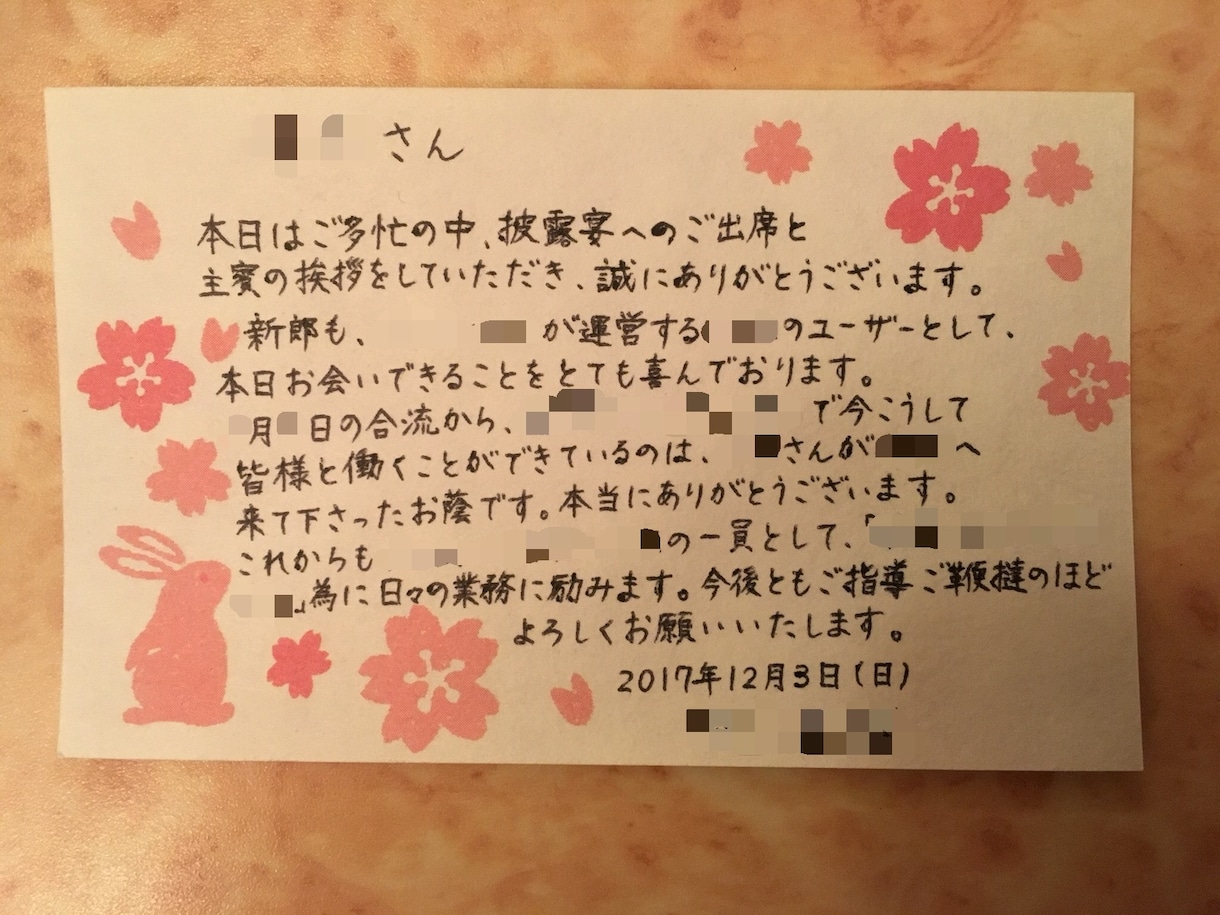 さん
本日はご多忙の中、披露宴へのご出席と
主賓の挨拶をしていただき、誠にありがとうございます。
新郎も、 が運営する のユーザーとして、
本日お会いできることをとても喜んでおります。
月 日の合流から、 で今こうして
皆様と働くことができているのは、 さんが へ
来て下さったお蔭です。本当にありがとうございます。
これからも の一員として、「
」為に日々の業務に励みます。今後ともご指導ご鞭撻のほど
よろしくお願いいたします。
2017年12月3日(日)